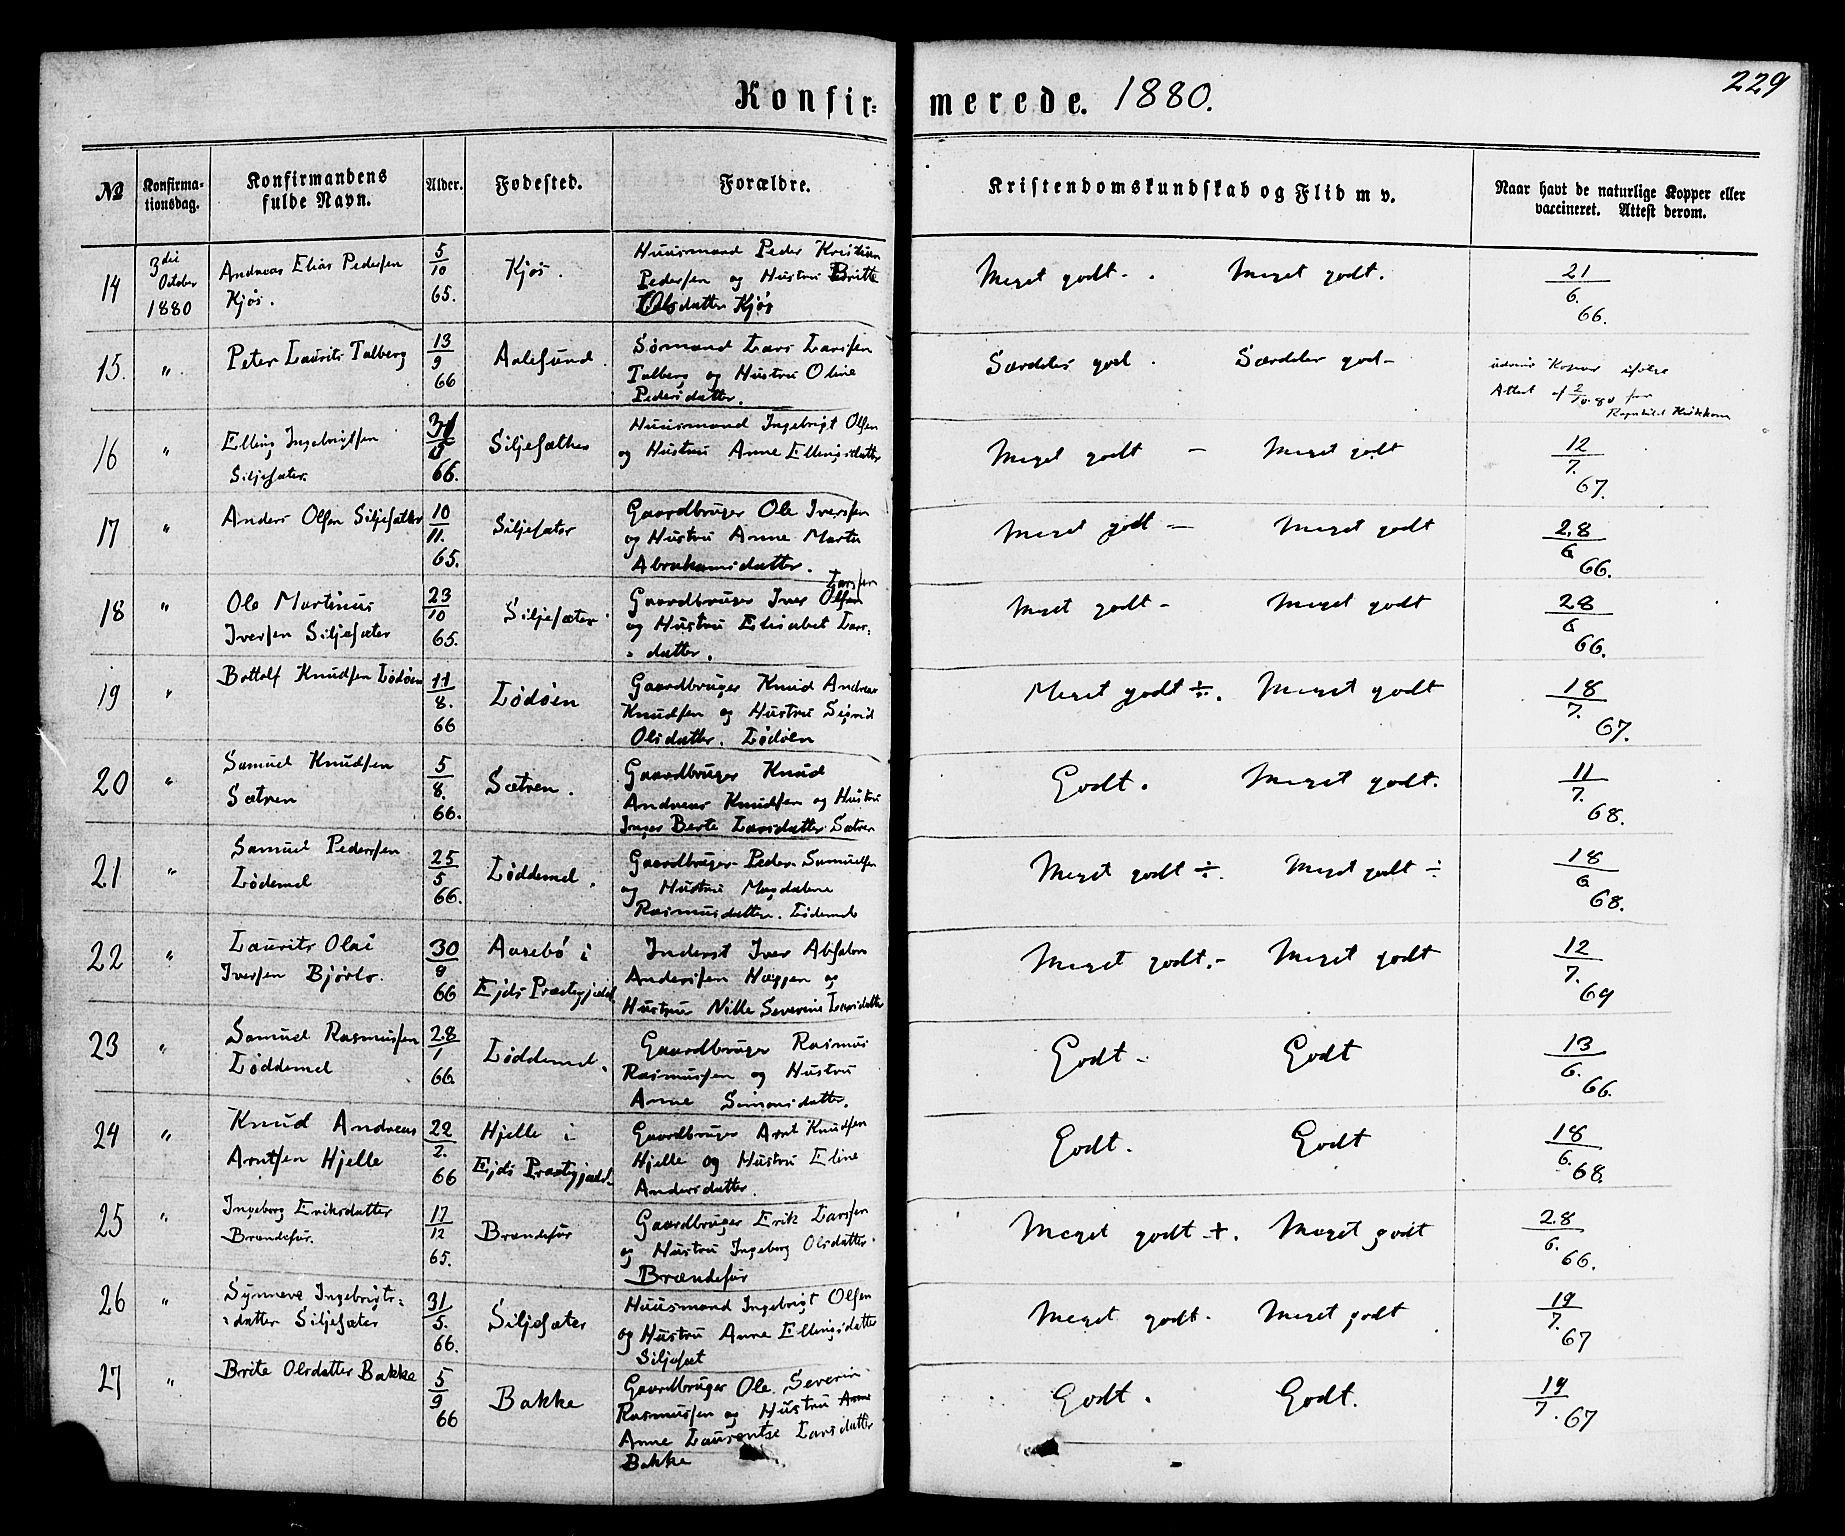 229
Konfir= merede. 1880.
№ Konfirma-tionsdag. Konfirmandens fulde Navn. Alder. Fødested. Forældre. Kristendomskundskab og Flid m v. Naar havt de naturlige Kopper eller vaccineret. Attest derom.
14 3die October 1880 Andreas Elias Pedersen Kjøs. 5/10 65. Kjøs. Huusmand Peder Kristian Pedersen og Hustru Britte Olsdatter Kjøs Meget godt. Meget godt. 21/6. 66.
15. " Peter Laurits Talberg 13/9 66 Aalesund. Sømand Lars Larssen Talberg og Hustru Oline Pedersdatter. Særdeles god. Særdeles god Attest af 2/10.80
16 " Elling Ingebrigtsen Siljesæter. 31/5 66. Siljesæther Huusmand Ingebrigt Olsen og Hustru Anne Ellingsdatter Meget godt Meget godt 12/7. 67.
17 " Anders Olsen Siljesæter 10/11. 65. Siljesæter Gaardbruger Ole Iversen og Hustru Anne Marta Abrahamsdatter. Meget godt Meget godt 28/6 66.
18 " Ole Martinus Iversen Siljesæter 23/10 65. Siljesæter Gaardbruger Iver Olsen Larssen og Hustru Elisabet Lars= = datter. Meget godt Meget godt 28/6 66.
19 " Bottolf Knudsen Lødøen 11/8. 66 Lødøen Gaardbruger Knud Andreas Knudsen og Hustru Sigrid Olsdatter. Lødøen Meget godt ÷. Meget godt 18/7. 67.
20 " Samuel Knudsen Sætren 5/8. 66. Sætren. Gaardbruger Knud Andreas Knudsen og Hustru Inger Berte Larsdatter Sætren Godt. Meget godt. 11/7. 68.
21 " Samuel Pedersen Lødemel 25/5 66. Løddemel. Gaardbruger Peder Samuelsen og Hustru Magdalene Rasmusdatter. Lødemel Meget godt ÷. Meget godt ÷ 18/6 68.
22 " Laurits Olai Iversen Bjørlo. 30/8 66 Aarebø i Ejds Præstegjæld Inderst Iver Absalon Andersen Heggen og Hustru Nille Severine Larsdatter Meget godt. Meget godt 12/7. 69
23 " Samuel Rasmussen Løddemel 28/1 66. Løddemel. Gaardbruger Rasmus Rasmussen og Hustru Anne Simonsdatter. Godt Godt 13/6. 66.
24 " Knud Andreas Arntsen Hjelle 22/2. 66 Hjelle i Ejds Præstegjæld. Gaardbruger Arnt Knudsen Hjelle og Hustru Eline Andersdatter. Godt. Godt 18/6. 68.
25 " Ingeborg Eriksdatter Brændefur. 17/12 65. Brændefur Gaardbruger Erik Larssen og Hustru Ingeborg Olsdatter Brændefur Meget godt +. Meget godt 28/6. 66.
26 " Synneve Ingebrigts= =datter Siljesæter 31/5. 66. Siljesæter Huusmand Ingebrigt Olsen og Hustru Anne Ellingsdatter Siljesæt Meget godt. Meget godt 19/7. 67
27 " Brite Olsdatter Bakke 5/9 66 Bakke Gaardbruger Ole Severin Rasmussen og Hustru Anne Anne Laurentse Larsdatter Bakke Godt. Godt. 19/7. 67